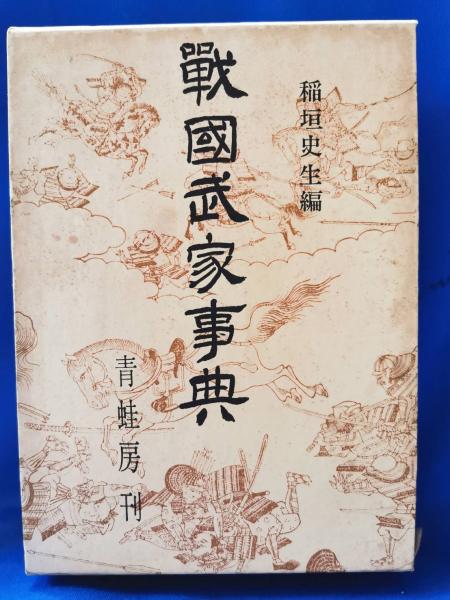 稲垣史生編
戰國武家事典
青蛙房刊